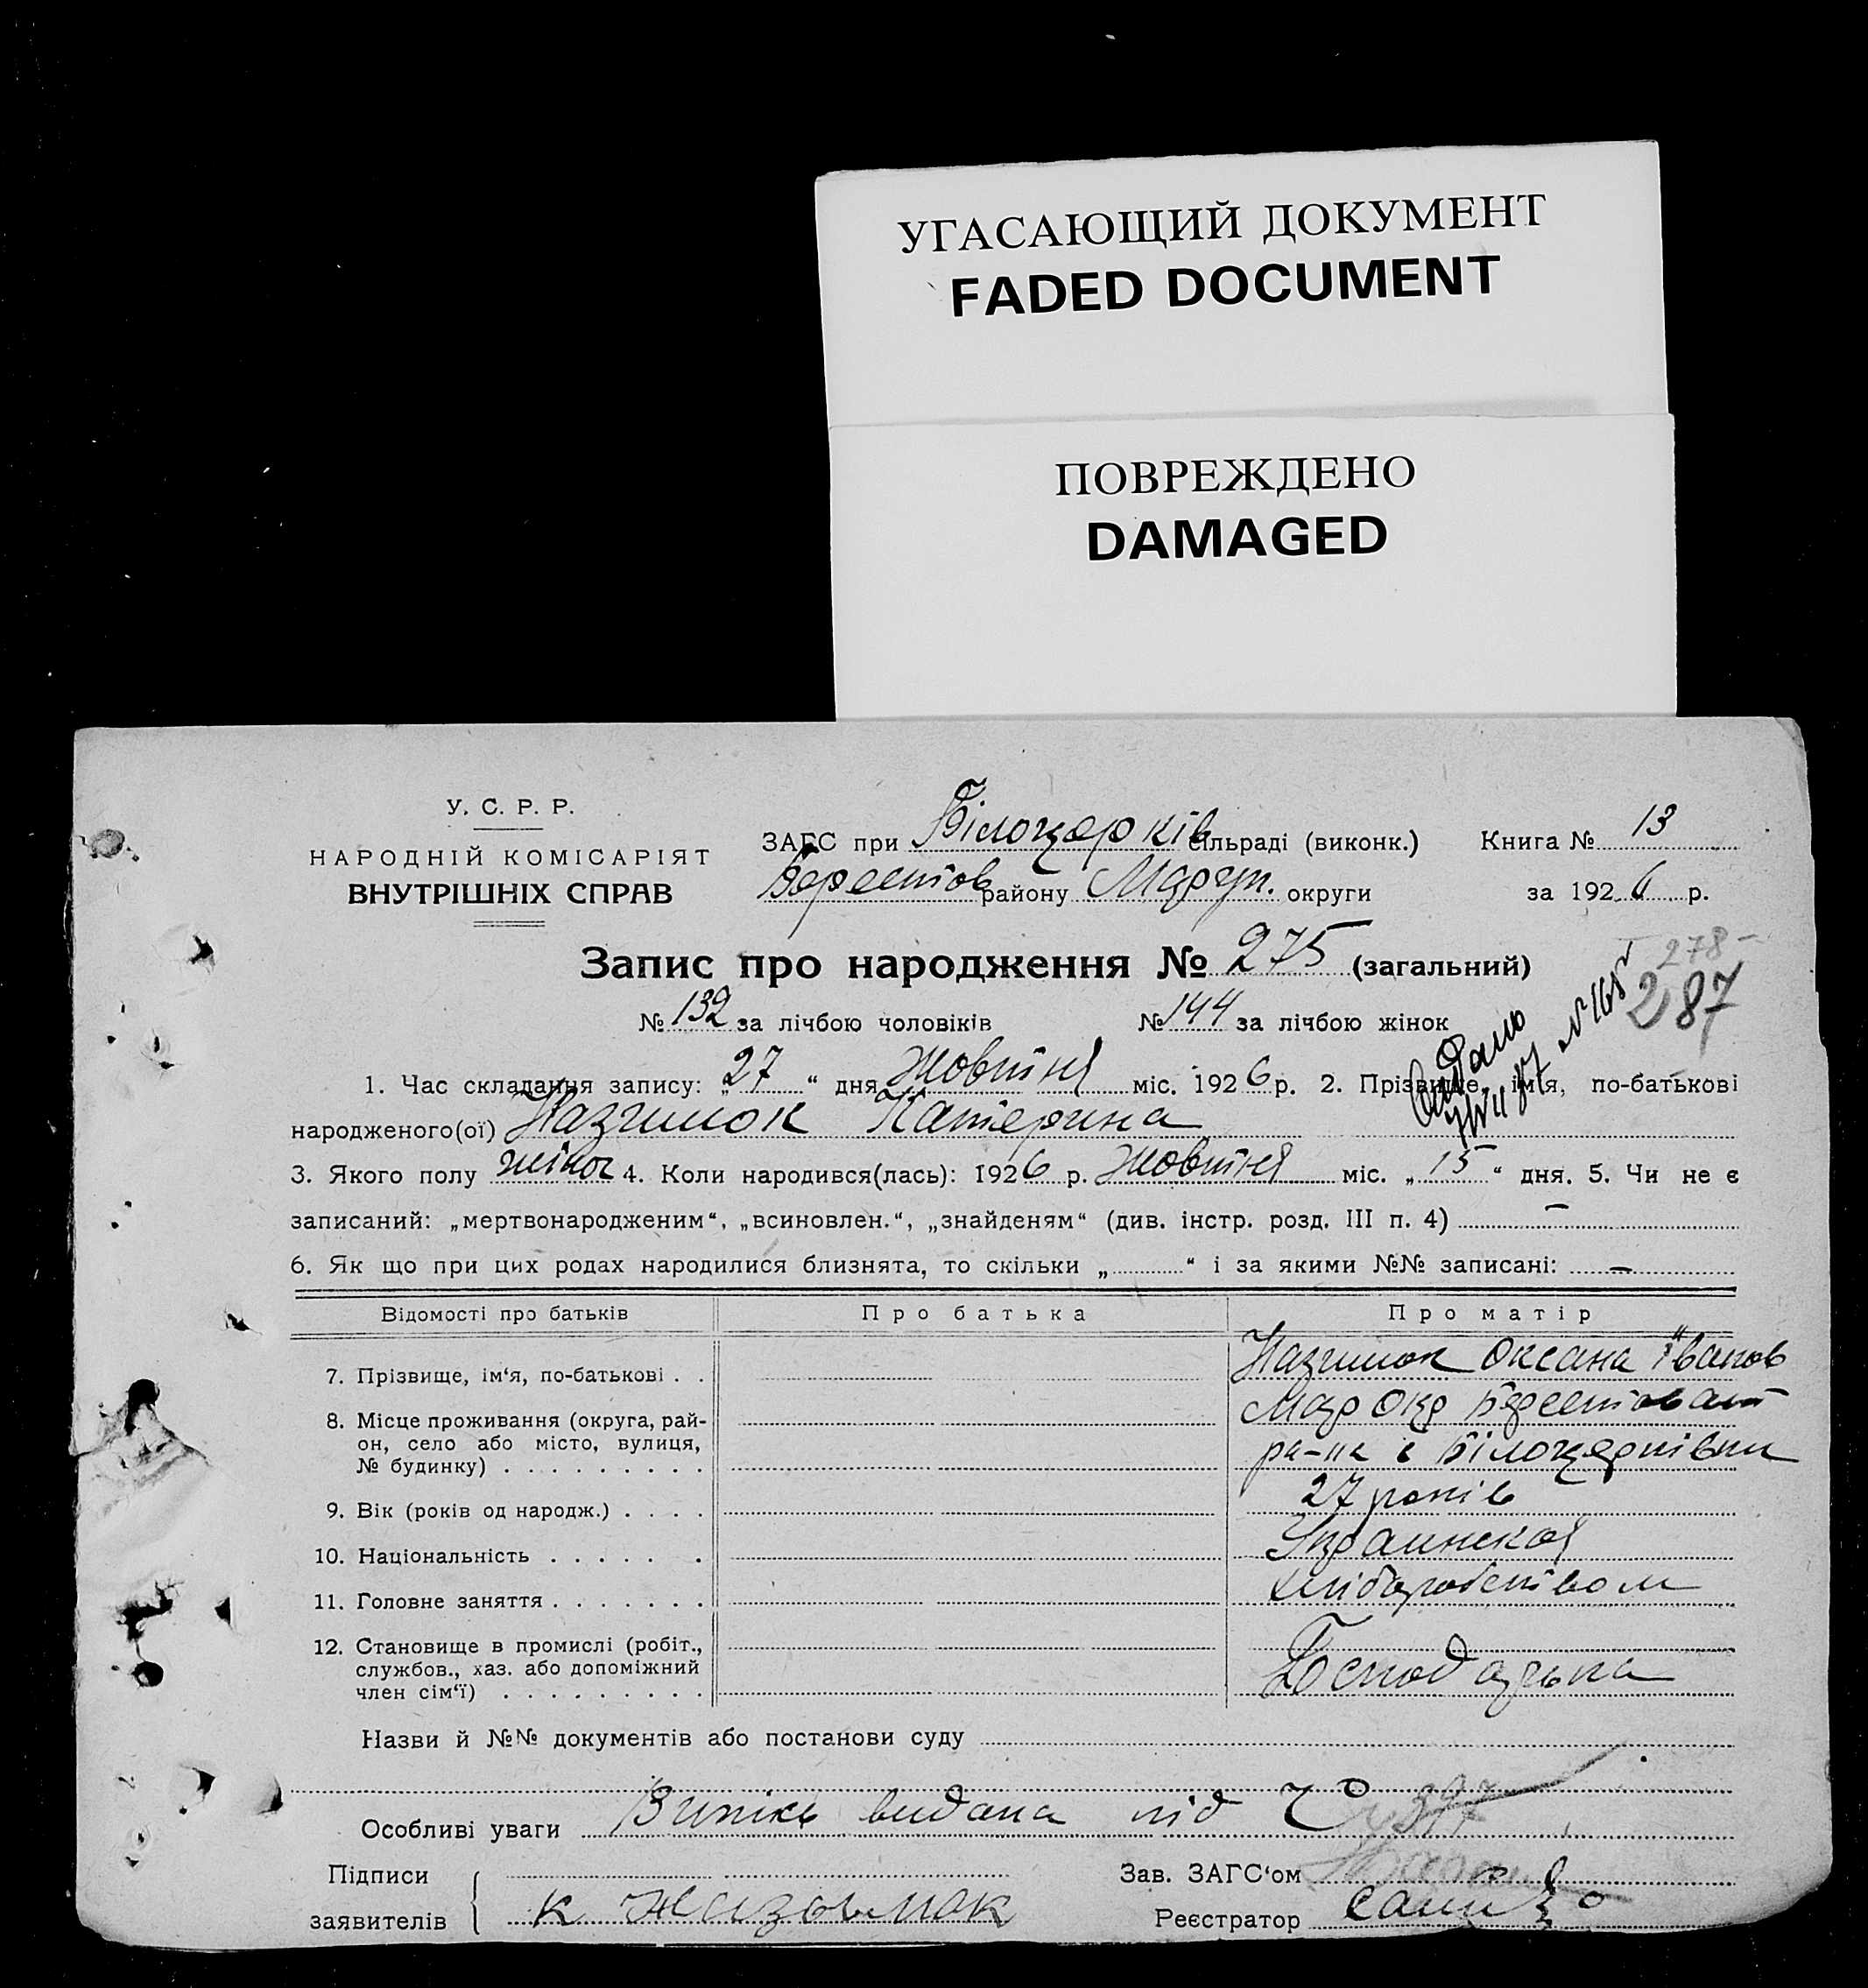 УГАСАЮЩИЙ ДОКУМЕНТ
FADED DOCUMENT
ПОВРЕЖДЕНО
DAMAGED
У. С. Р. Р.
НАРОДНІЙ КОМІСАРІЯТ
ВНУТРІШНІХ СПРАВ
ЗАГС при Білоцерків сільраді (виконк.) Книга № 13
Берестов району Маріуп. округи за 1926 р.
Запис про народження № 275 (загальний)
278
287
№ 132 за лічбою чоловіків № 144 за лічбою жінок
1. Час складання запису: „27“ дня Жовтня міс. 1926 р. 2. Прізвище, ім‘я, по-батькові
народженого(ої) Казимок Катерина
3. Якого полу жіноч 4. Коли народився(лась): 1926 р. Жовтня міс. „15“ дня. 5. Чи не є
записаний: „мертвонародженим“, „всиновлен.“, „знайденям“ (див. інстр. розд. III п. 4) —
6. Як що при цих родах народилися близнята, то скільки „.....“ і за якими №№ записані: —
Відомості про батьків Про батька Про матір
7. Прізвище, ім‘я, по-батькові . . Казимок Оксана Іванов
8. Місце проживання (округа, рай-
он, село або місто, вулиця,
№ будинку) . . . . . . . . .
Мар Окр Берестоват
ра-на с Білоцерківки
9. Вік (років од народж.) . . . . 27 років
10. Національність . . . . . . Украинская
11. Головне заняття . . . . . . . хліборобством
12. Становище в промислі (робіт.,
службов., хаз. або допоміжний
член сім‘ї) . . . . . . . . .
Господарька
Назви й №№ документів або постанови суду
Особливі уваги Випісь видана під
Підписи
заявителів К
Зав. ЗАГС‘ом
Реєстратор